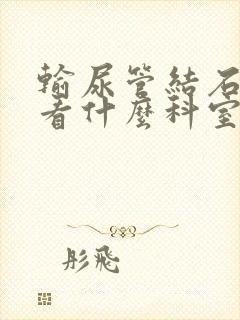 輸尿管結石
看什麼科室
彤飛